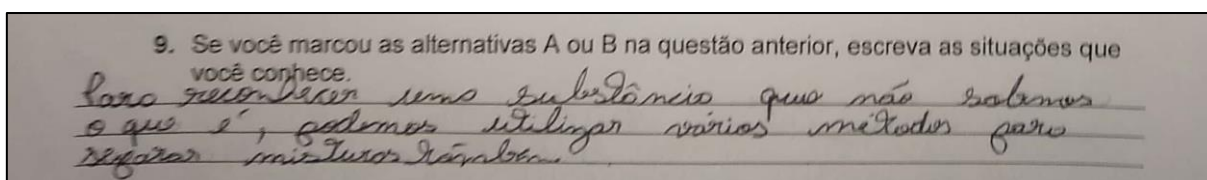 9. Se você marcou as alternativas A ou B na questão anterior, escreva as situações que
você conhece.
Para reconhecer uma substância que não sabemos
o que é, podemos utilizar vários métodos para
separar misturas também.